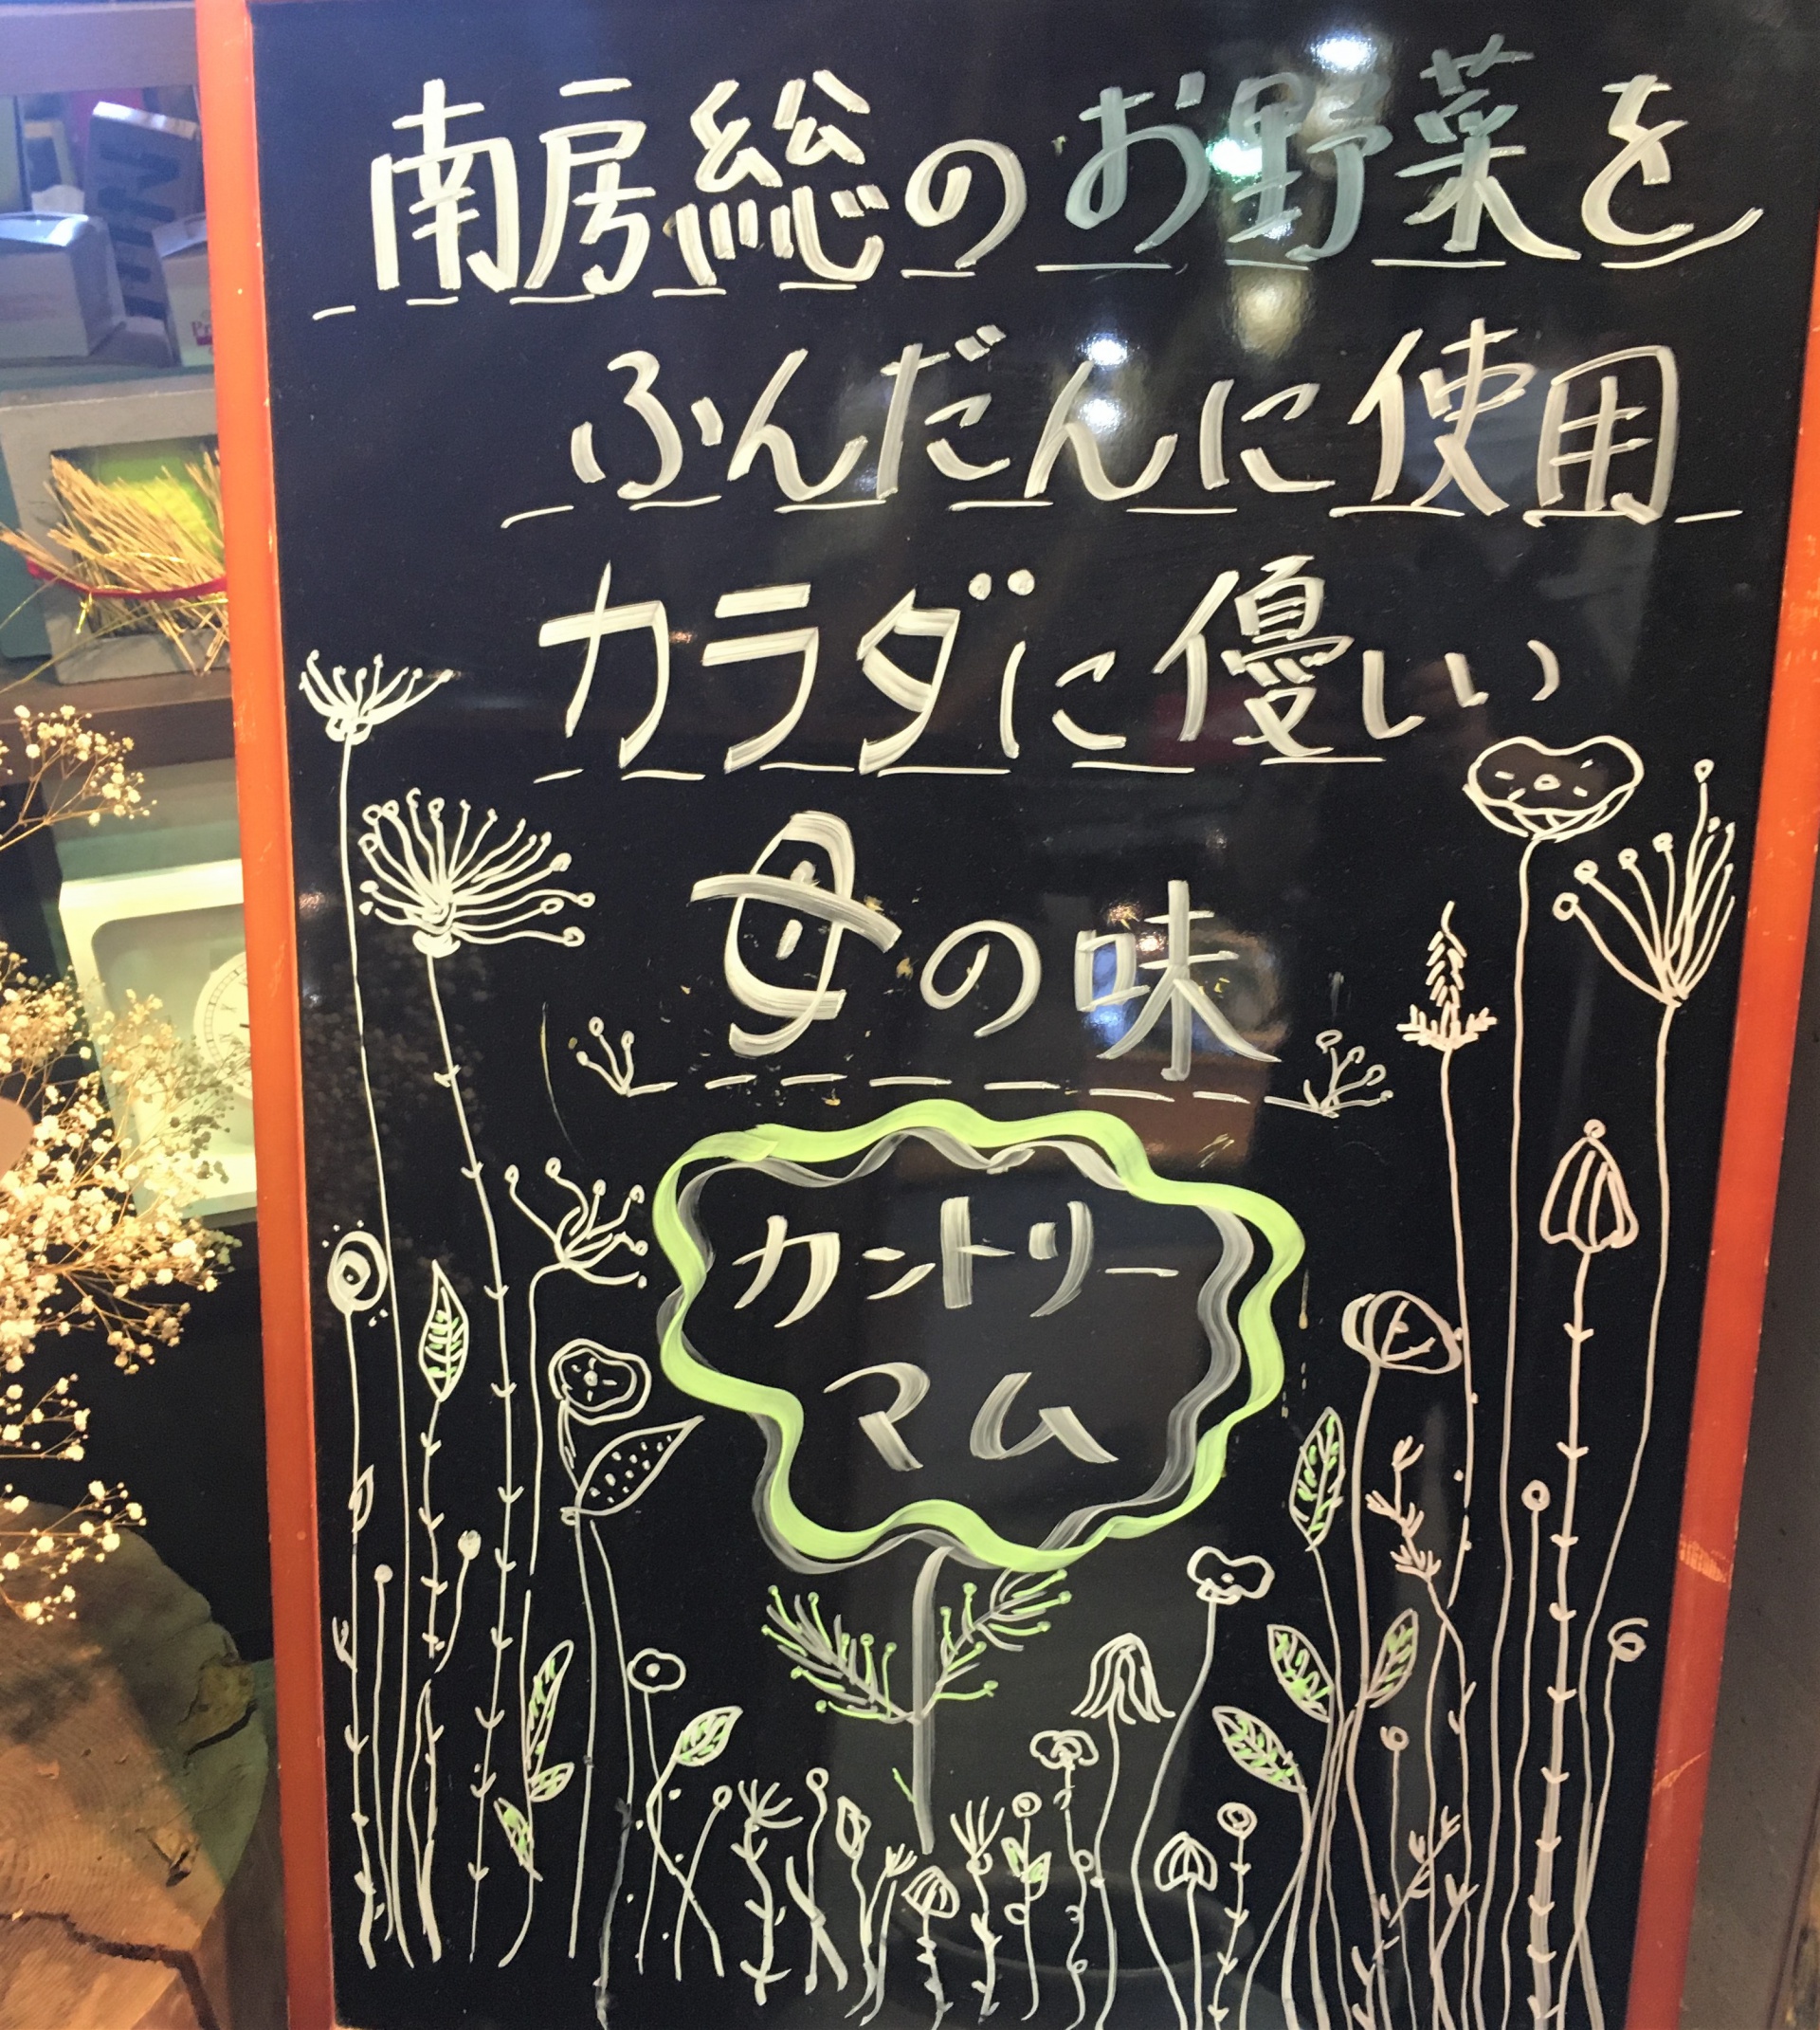 南房総のお野菜を
ふんだんに使用
カラダに優しい
母の味
カントリー
マム